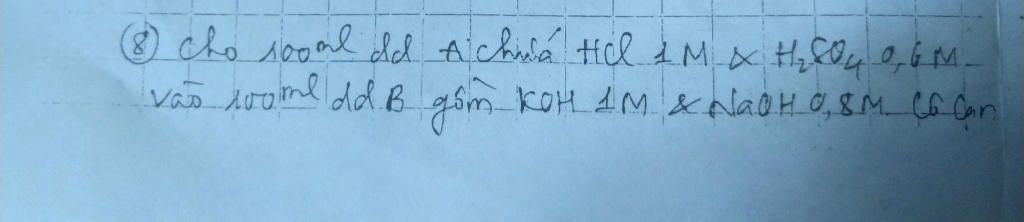 ⑧ Cho 100ml dd A chứá HCl 1M & H₂SO₄ 0,6M
vào 100ml dd B gồm KOH 1M & NaOH 0,8M. Cô Cạn